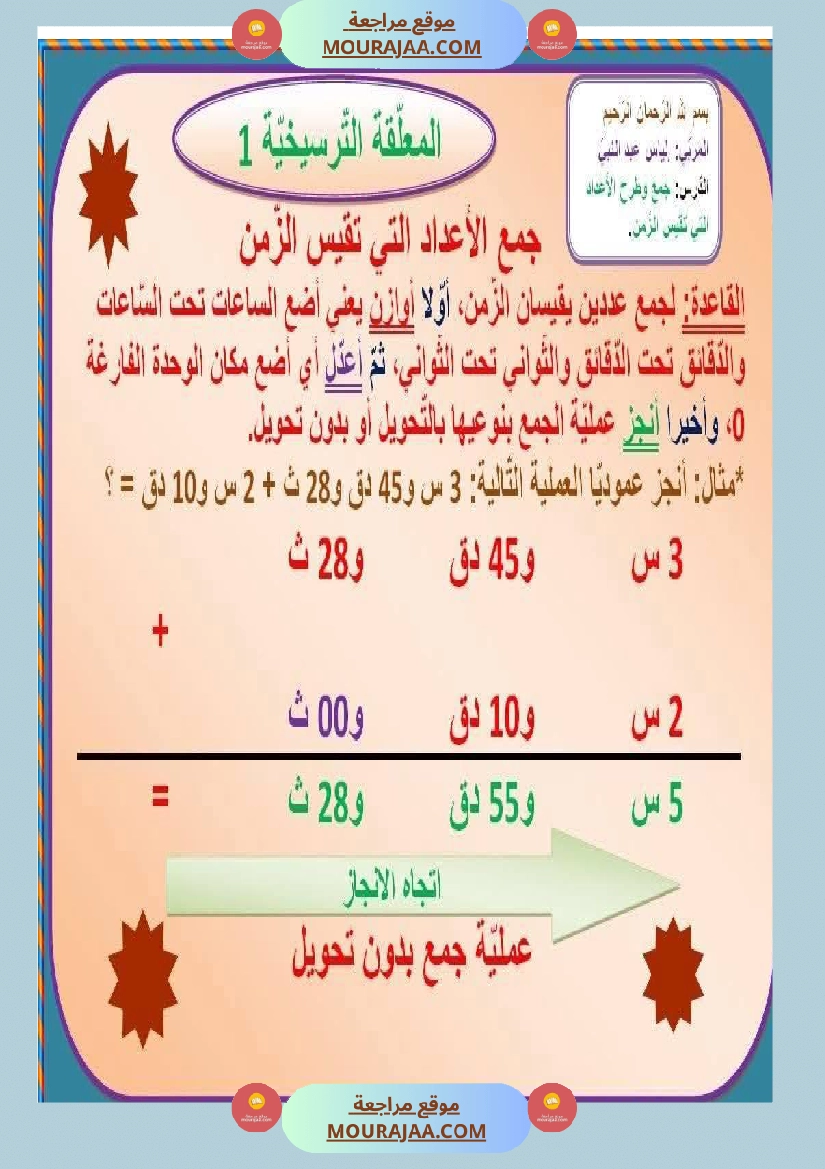 موقع مراجعة
MOURAJAA.COM
بسم الله الرّحمان الرّحيم
المربّي: لياس عبد النّبيّ
الدّرس: جمع وطرح الأعداد
التي تقيس الزّمن.
المعلّقة التّرسيخيّة 1
جمع الأعداد التي تقيس الزّمن
القاعدة: لجمع عددين يقيسان الزّمن، أوّلا أوازن يعني أضع الساعات تحت السّاعات
والدّقائق تحت الدّقائق والثّواني تحت الثّواني، ثمّ أعدّل أي أضع مكان الوحدة الفارغة
0، وأخيرا أنجز عمليّة الجمع بنوعيها بالتّحويل أو بدون تحويل.
*مثال: أنجز عموديّا العملية التّالية: 3 س و45 دق و28 ث + 2 س و10 دق = ؟
3 س و45 دق و28 ث
+
2 س و10 دق و00 ث
5 س و55 دق و28 ث =
اتجاه الانجاز
عمليّة جمع بدون تحويل
موقع مراجعة
MOURAJAA.COM